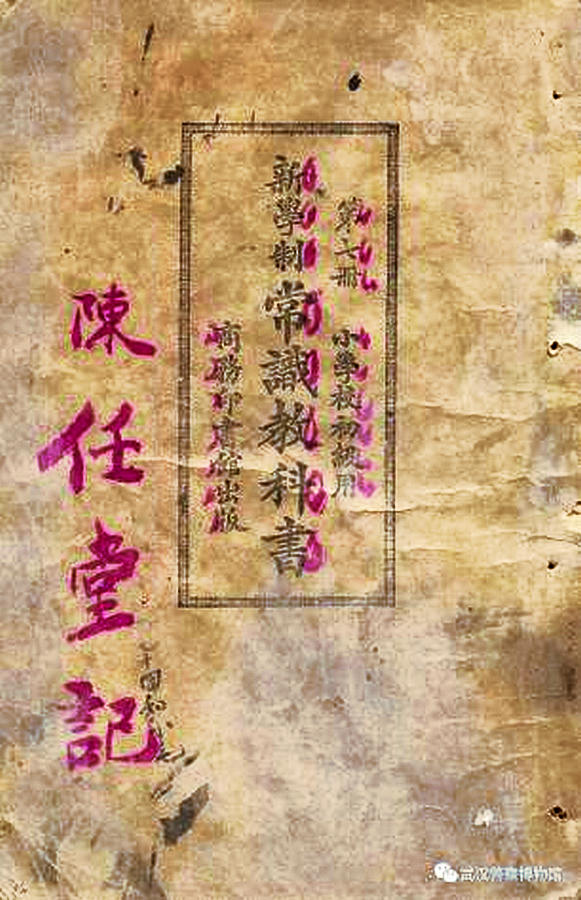 第六冊 小學校初級用
新學制常識教科書
商務印書館出版
陳任堂記
武汉警察博物馆